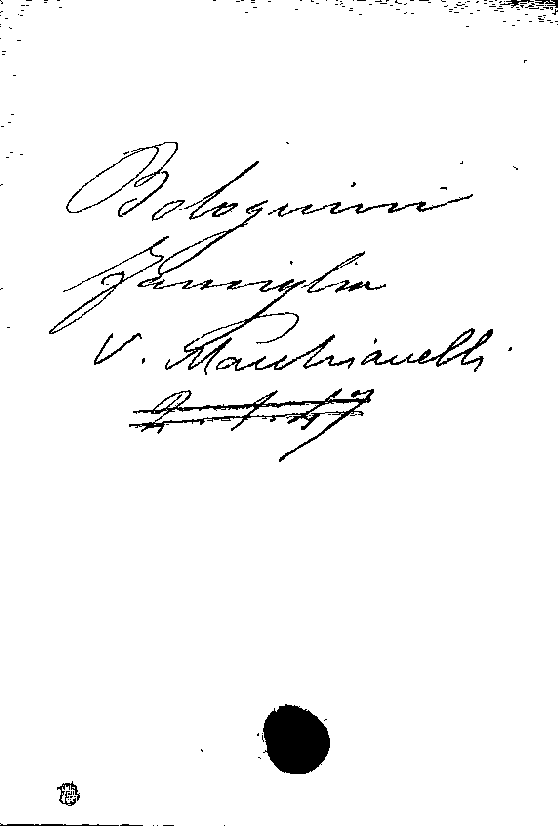 Bolognini
Famiglia
V. Machiavelli